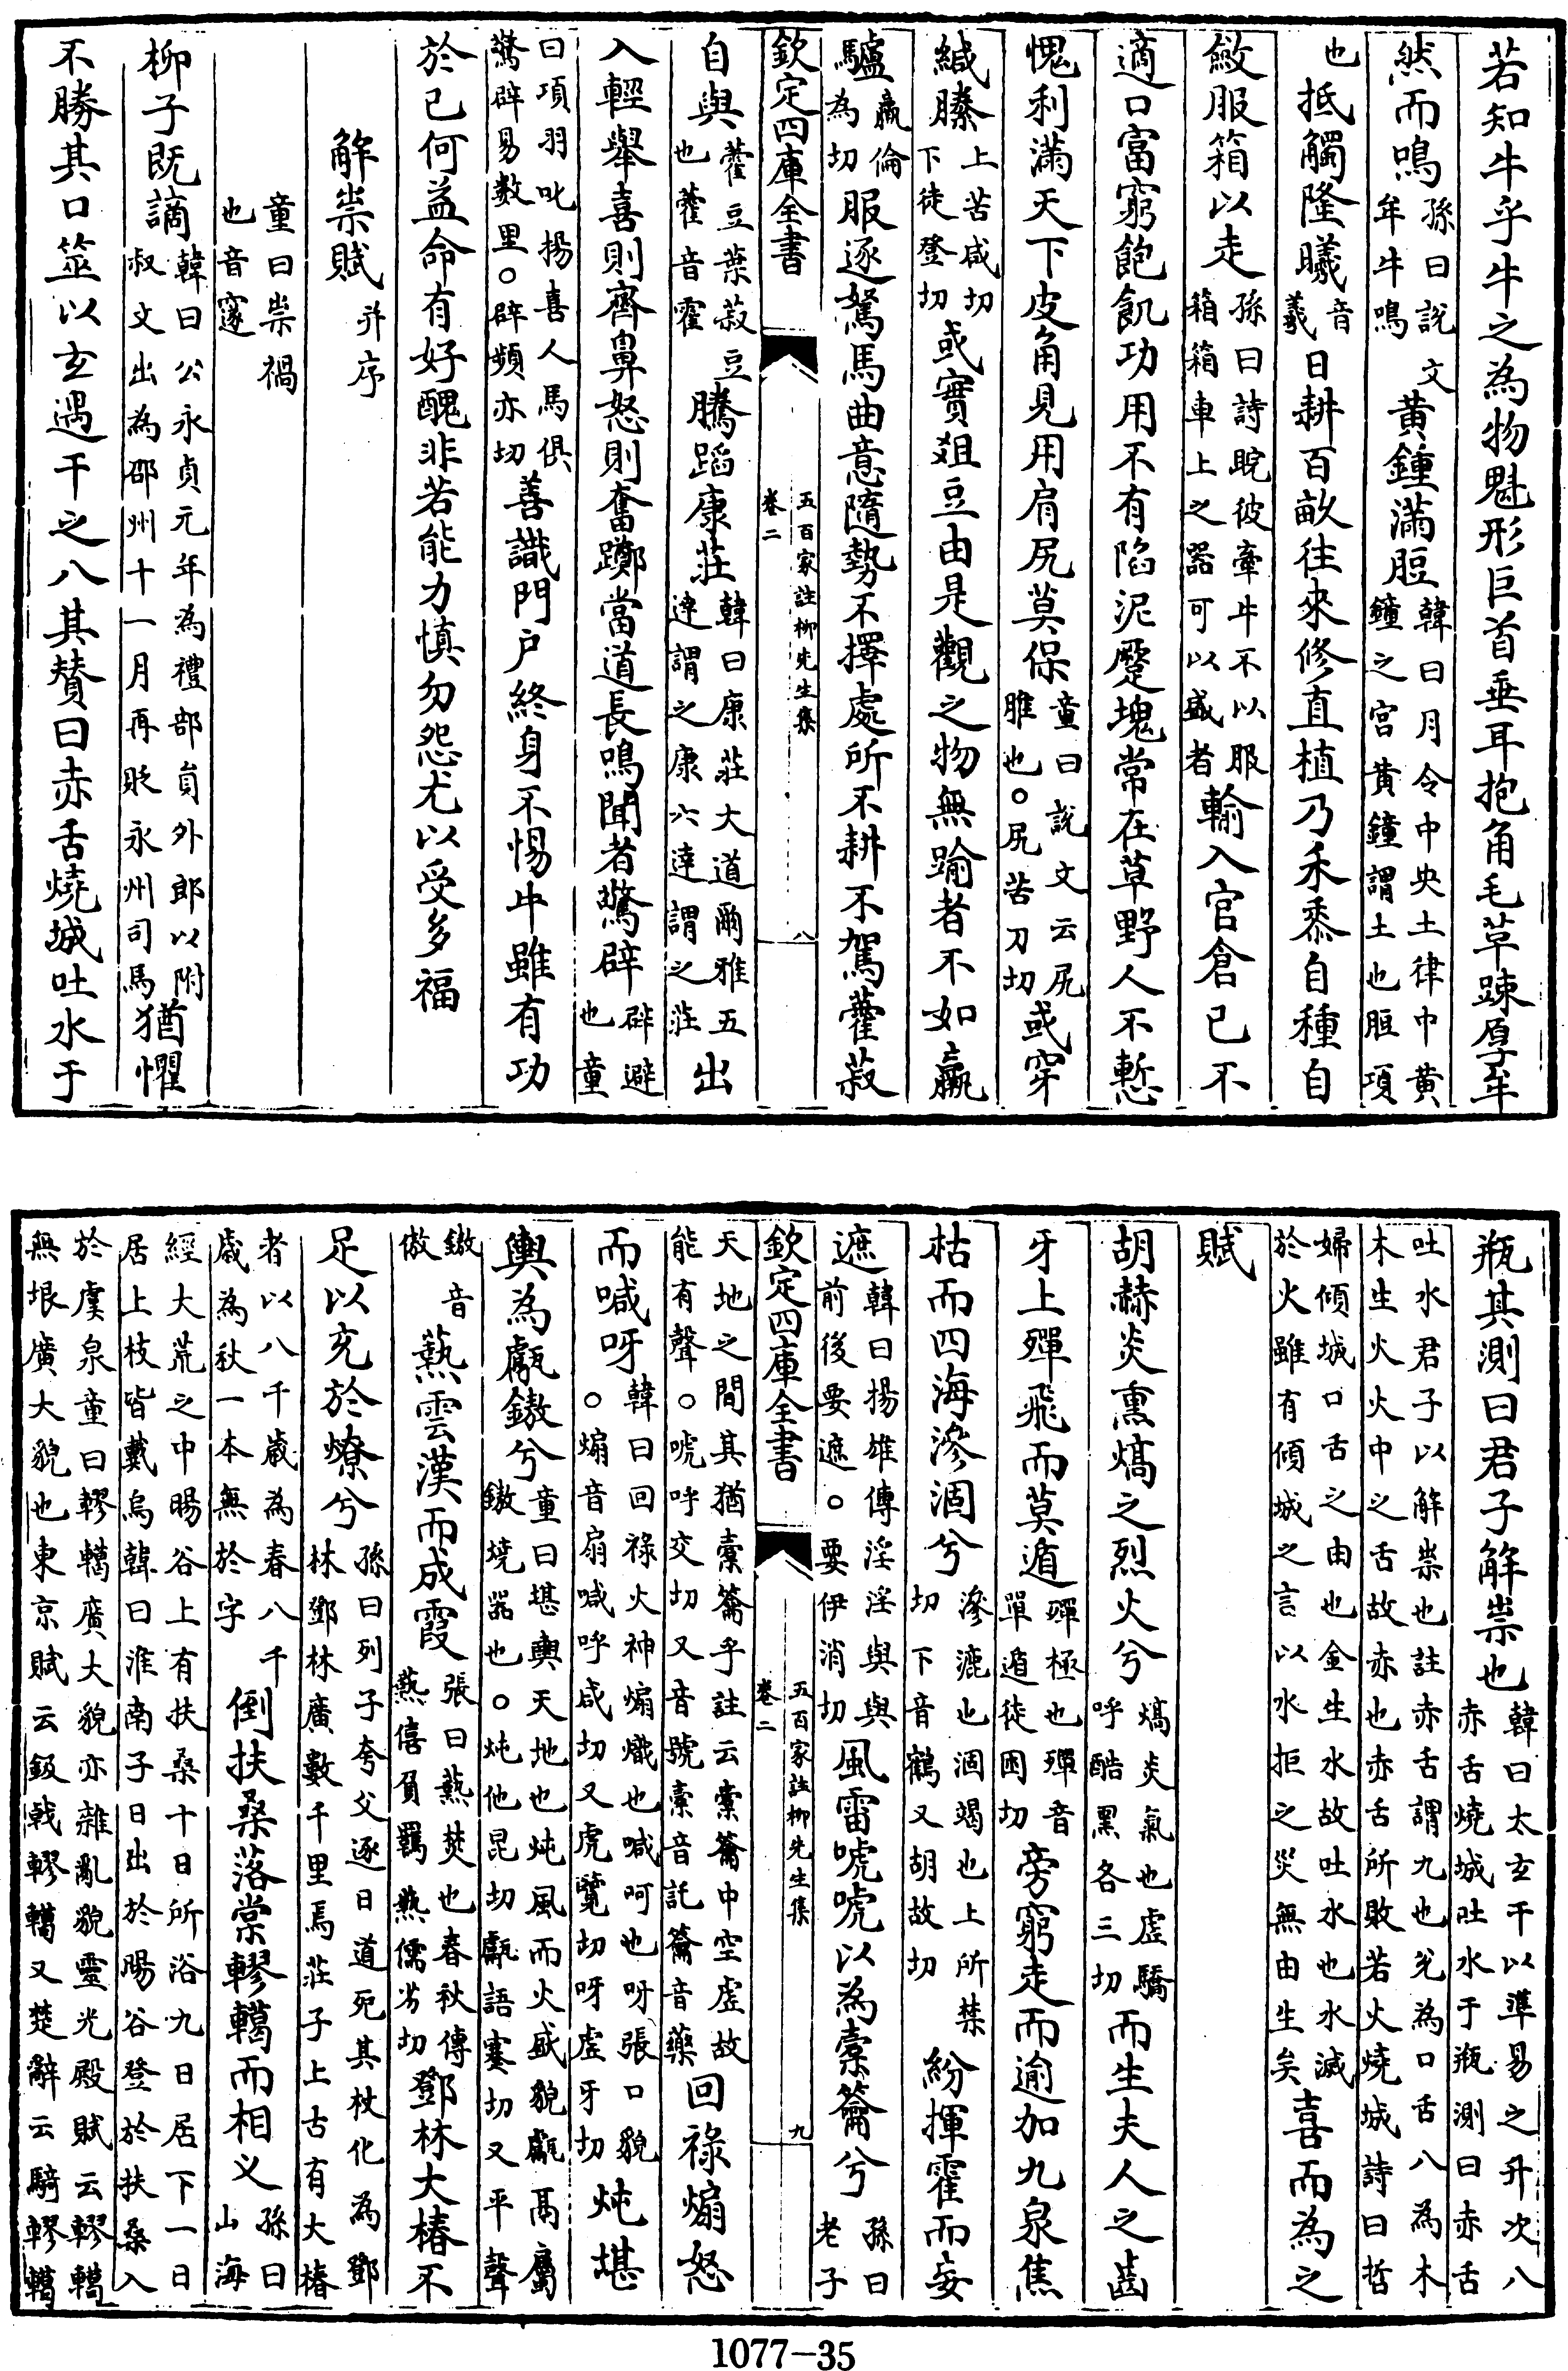 若知牛乎牛之為物魁形巨首垂耳抱角毛革疎厚牟
然而鳴孫曰說文牟牛鳴黄鍾滿脰韓曰月令中央土律中黄鐘之宫黄鐘謂土也脰項
也抵觸隆曦音羲日耕百畝往來修直植乃禾黍自種自
斂服箱以走孫曰詩睆彼牽牛不以服箱箱車上之器可以盛者輸入官倉已不
適口富窮飽飢功用不有陷泥蹷塊常在草野人不慙
愧利滿天下皮角見用肩尻莫保童曰說文云尻脽也。尻苦刀切或穿
緘縢上苦咸切下徒登切或實爼豆由是觀之物無踰者不如羸
驢羸倫為切服逐駑馬曲意隨勢不擇處所不耕不駕藿菽
欽定四庫全書
五百家註柳先生集
卷二
八
自與藿豆葉菽豆也藿音霍騰蹈康莊韓曰康莊大道爾雅五達謂之康六達謂之莊出
入輕舉喜則齊鼻怒則奮躑當道長鳴聞者驚辟辟避也童
曰項羽叱揚喜人馬俱驚辟易数里。辟頻亦切善識門户終身不惕牛雖有功
於已何益命有好醜非若能力慎勿怨尤以受多福
解祟賦并序
童曰祟禍也音邃
柳子既謫韓曰公永貞元年為禮部員外郎以附叔文出為邵州十一月再貶永州司馬猶懼
不勝其口筮以玄遇干之八其賛曰赤舌燒城吐水于
瓶其測曰君子解祟也韓曰太玄干以準易之升次八赤舌燒城吐水于瓶測曰赤舌
吐水君子以解祟也註赤舌謂九也兊為口舌八為木木生火火中之舌故赤也赤舌所敗若火燒城詩曰哲
婦傾城口舌之由也金生水故吐水也水滅於火雖有傾城之言以水拒之災無由生矣喜而為之
賦
胡赫炎熏熇之烈火兮熇炎氣也虚驕呼酷黑各三切而生夫人之齒
牙上殫飛而莫遁殫極也殫音單遁徒困切旁窮走而逾加九泉焦
枯而四海滲涸兮滲漉也涸竭也上所禁切下音鶴又胡故切紛揮霍而妄
遮韓曰揚雄傳淫淫與與前後要遮。要伊消切風雷唬唬以為橐籥兮孫曰老子
欽定四庫全書
五百家註柳先生集
卷二
九
天地之間其猶橐籥乎註云橐籥中空虚故能有聲。唬呼交切又音號橐音託籥音藥回禄煽怒
而喊呀韓曰回禄火神煽熾也喊呵也呀張口貌。煽音扇喊呼咸切又虎覽切呀虚牙切炖堪
輿為甗鏉兮童曰堪輿天地也炖風而火盛貌甗鬲屬鏉燒器也。炖他昆切甗語蹇切又平聲
鏉音傲爇雲漢而成霞張曰爇焚也春秋傳爇僖負羈爇儒劣切鄧林大椿不
足以充於燎兮孫曰列子夸父逐日道死其杖化為鄧林鄧林廣數千里焉莊子上古有大椿
者以八千歲為春八千歲為秋一本無於字倒扶桑落棠轇轕而相义孫曰山海
經大荒之中暘谷上有扶桑十日所浴九日居下一日居上枝皆戴烏韓曰淮南子日出於暘谷登於扶桑入
於虞泉童曰轇轕廣大貌亦雜亂貌靈光殿賦云轇轕無垠廣大貌也東京賦云鈒㦸轇轕又楚辭云騎轇轕
1077-35